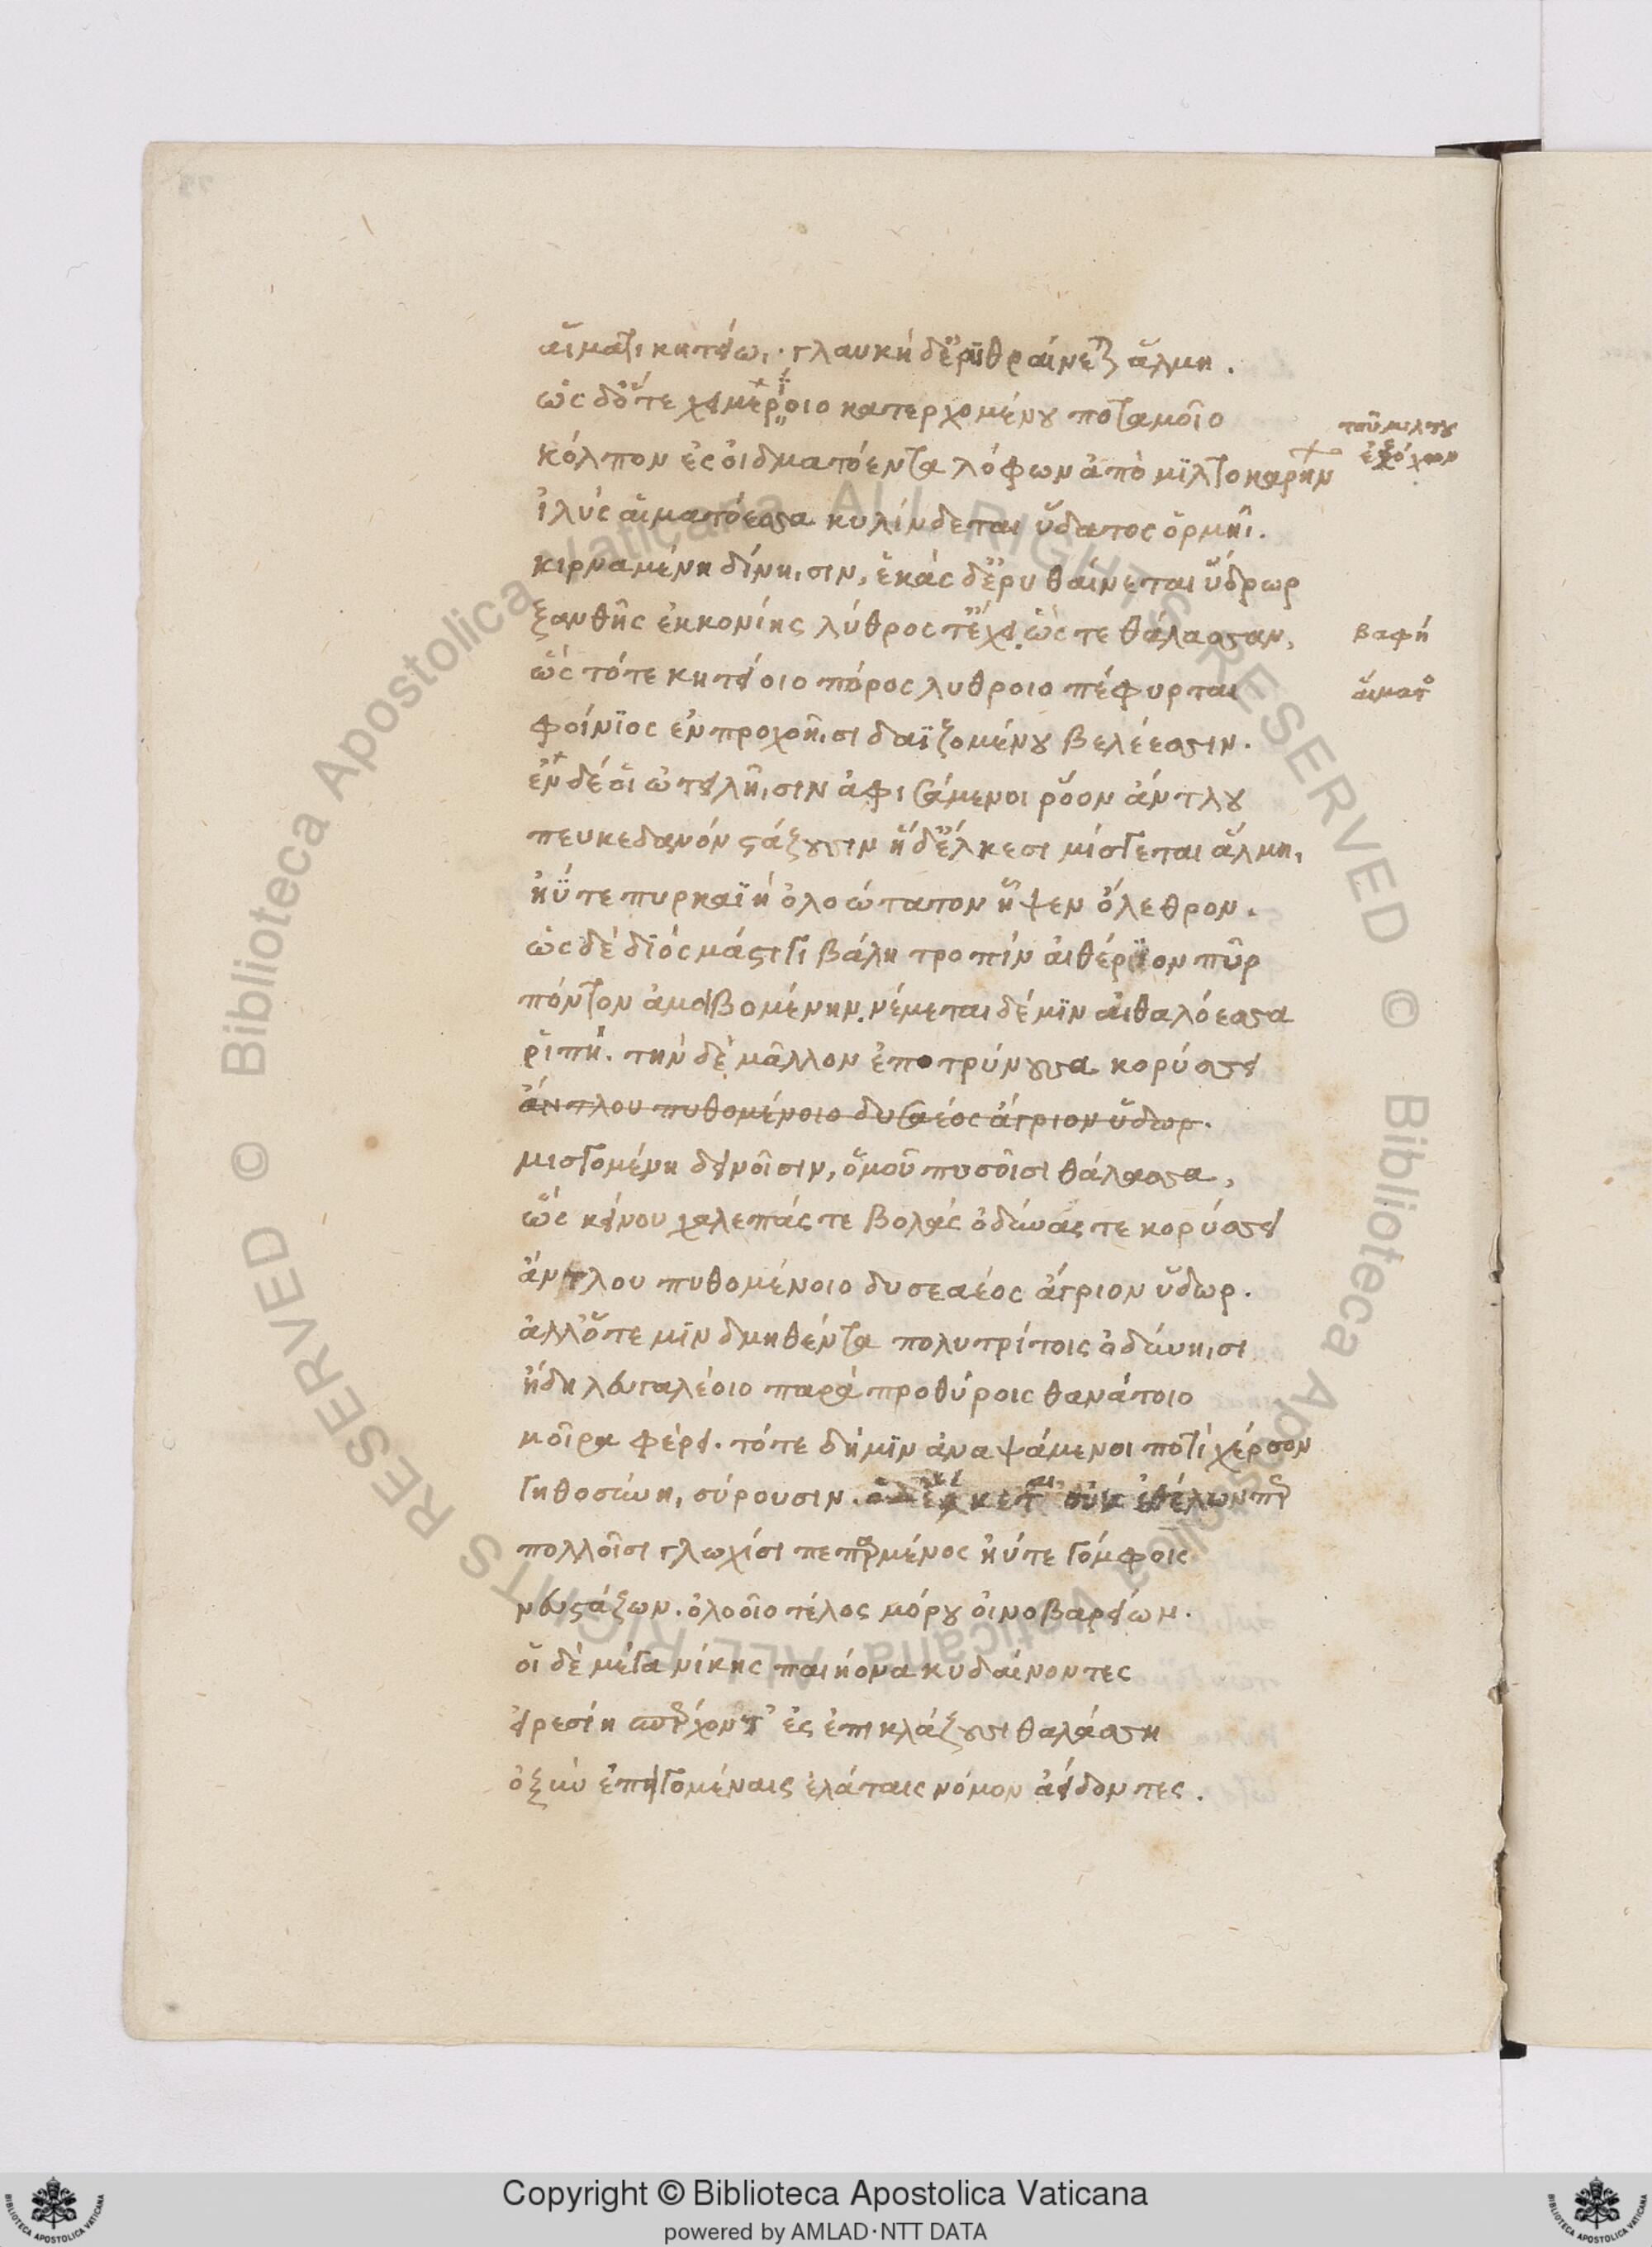 αἵματι κητείωι· γλαυκὴ δ' ἐρυθραίνεται ἅλμη.
ὡς δ' ὅτε χειμερίοιο κατερχομένου ποταμοῖο
κόλπον ἐς οἰδματόεντα λόφων ἀπὸ μιλτοκαρήν
τοῦ μιλτου
ἐξόχων
ἰλὺς αἱματόεσσα κυλίνδεται ὕδατος ὁρμῆι.
κιρναμένη δίνηισιν, ἑκὰς δ' ἐρυθαίνεται ὕδρωρ
ξανθῆς ἐκ κονίης λύθρος τ' ἔχει ὥς τε θάλασσαν,
βαφή
ὣς τότε κητείοιο πόρος λυθροιο πέφυρται
αἵματος
φοίνιος ἐν προχοῆισι δαϊζομένου βελέεσσιν.
ἐν δέ οἱ ὠτειλῆισιν ἀφυσάμενοι ῥόον ἄντλου
πευκεδανόν στάζουσιν ἡ δ' ἕλκεσι μίσγεται ἅλμη,
ἠΰτε πυρκαϊὴ ὀλοώτατον ἧψεν ὄλεθρον.
ὡς δὲ διὸς μάστιγι βάλη τροπὶν αἰθέριον πῦρ
πόντον ἀμειβομένην, νέμεται δέ μιν αἰθαλόεσσα
ῥιπή. τὴν δὲ μᾶλλον ἐποτρύνουσα κορύσσει
ἄντλου πυθομένοιο δυσαέος ἄγριον ὕδωρ.
μισγομένη δεινοῖσιν, ὁμοῦ πυσοῖσι θάλασσα,
ὣς κείνου χαλεπάς τε βολὰς ὀδύνας τε κορύσσει
ἄντλου πυθομένοιο δυσεαέος ἄγριον ὕδωρ.
ἀλλ' ὅτε μιν δμηθέντα πολυτρίτοις ὀδύνηισι
ἤδη λευγαλέοιο παρὰ προθύροις θανάτοιο
μοῖρα φέρει. τότε δή μιν ἀναψάμενοι ποτὶ χέρσον
γηθοσύνη, σύρουσιν. ὁ δ' ἕλκεται οὐκ ἐθέλων περ
πολλοῖσι γλωχῖσι πεπαρμένος ἠύτε γόμφοις
νευστάζων. ὀλοοῖο τέλος μόρου οἰνοβαρείων.
οἱ δὲ μέγα νίκης παιήονα κυδαίνοντες
εἰρεσίη σπέρχοντ' ἐς ἐπικλάζουσι θαλάσση
ὀξὺ ἐπηγομέναις ἐλάταις νόμον ἀείδοντες.